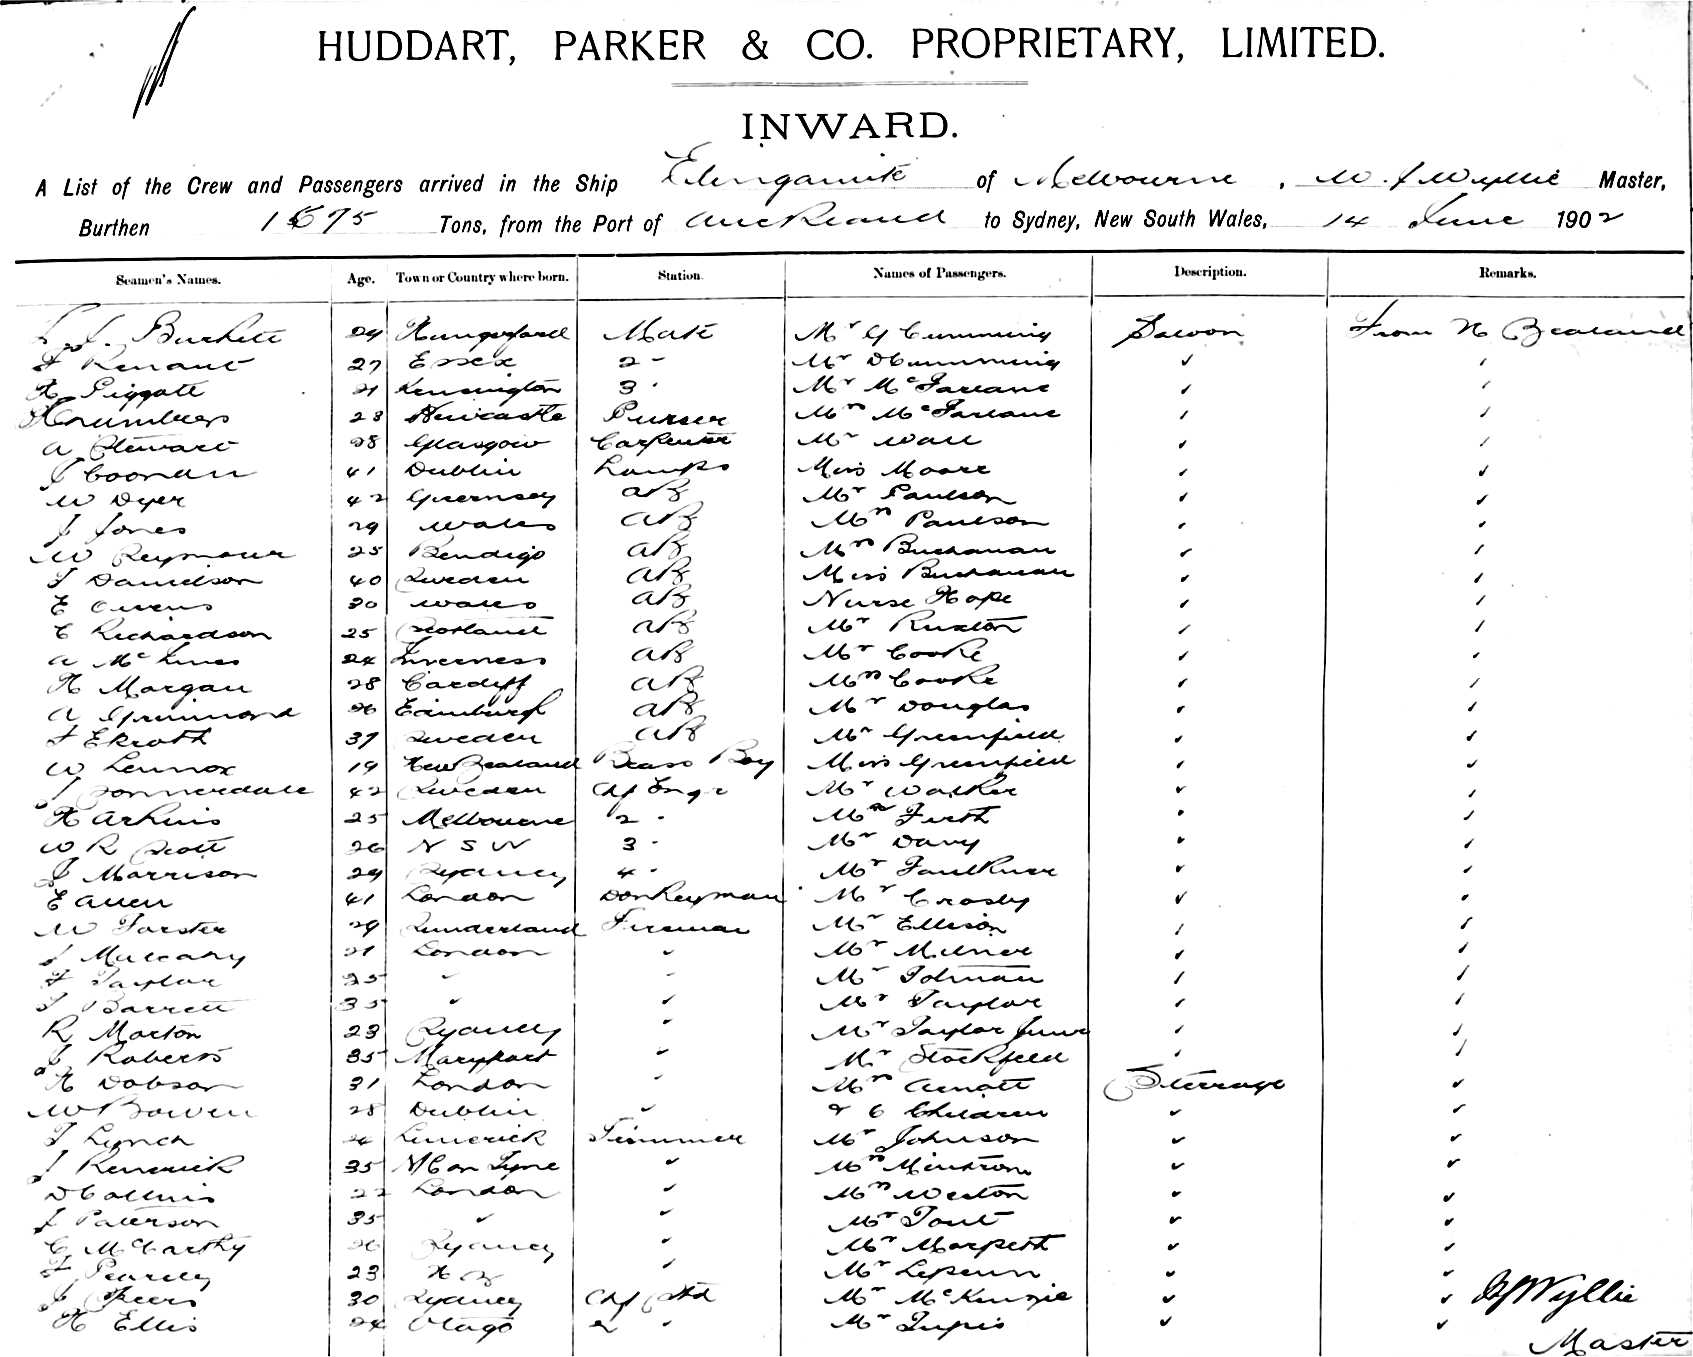 HUDDART, PARKER & CO. PROPRIETARY, LIMITED.
INWARD.
A List of the Crew and Passengers arrived in the Ship Elingamite of Melbourne, Wyllie Master,
Burthen Tons, from the Port of Auckland to Sydney, New South Wales, 14 June 1902
Seamen's Names. Age. Town or Country where born. Station. Names of Passengers. Description. Remarks.
Burkett 29 Hungerford Mate Mr G Cumming Saloon From N Zealand
27 Essex 2 " Mr D Cumming ✓ ✓
H Piggott 21 Kensington 3 " Mr McFarlane ✓ ✓
28 Newcastle Purser Mrs McFarlane ✓ ✓
A Stewart 28 Glasgow Carpenter Mr Wall ✓ ✓
J Coonan 41 Dublin Lamps Miss Moore ✓ ✓
W Dyer 42 Guernsey AB Mr Paulson ✓ ✓
J Jones 29 Wales AB Mrs Paulson ✓ ✓
W Seymour 25 Bendigo AB Mrs Buchanan ✓ ✓
Danielson 40 Sweden AB Miss Buchanan ✓ ✓
E Owens Wales AB Nurse Hope ✓ ✓
C Richardson 25 Scotland AB Mr Ruxton ✓ ✓
A McInnes 24 Inverness AB Mr Cooke ✓ ✓
H Morgan 28 Cardiff AB Mrs Cooke ✓ ✓
A Grimmond 26 Edinburgh AB Mr Douglas ✓ ✓
Ekroth 37 Sweden AB Mr Greenfield ✓ ✓
W Lennox 19 New Zealand Brass Boy Miss Greenfield ✓ ✓
J Sonnerdale 42 Sweden Chf Engr Mr Walker ✓ ✓
H Arkins 25 Melbourne 2 " Firth ✓ ✓
W R Scott 26 N S W 3 " Mr Davy ✓ ✓
J Morrison 29 Sydney 4 " Mr Faulkner ✓ ✓
E Allen 41 London Donkeyman Mr Crosby ✓ ✓
W Forster 29 Sunderland Fireman Mr Ellison ✓ ✓
J Mulcahy 21 London " Mr Milner ✓ ✓
Taylor 25 " " Mr Tolman ✓ ✓
Barrett 35 " " Mr Taylor ✓ ✓
R Morton 23 Sydney " Mr Taylor Junr ✓ ✓
J Roberts 35 Maryport " Mr Stockfeld ✓ ✓
H Dobson 31 London " Mrs Arnott Steerage ✓
W Bowen 28 Dublin " & 6 Children ✓ ✓
Lynch Limerick Trimmer Mr Johnson ✓ ✓
J Kenrick 35 N C on Tyne " Mrs ✓ ✓
D Collins 22 London " Mrs Weston ✓ ✓
J Paterson 35 " " Mr Tout ✓ ✓
C McCarthy 26 Sydney " Mr Morpeth ✓ ✓
23 N Z " Mr ✓ ✓
J Speers 30 Sydney Chf Std Mr McKenzie ✓ ✓ Wyllie
H Ellis 24 Otago 2 " Mr Tupis ✓ ✓ Master